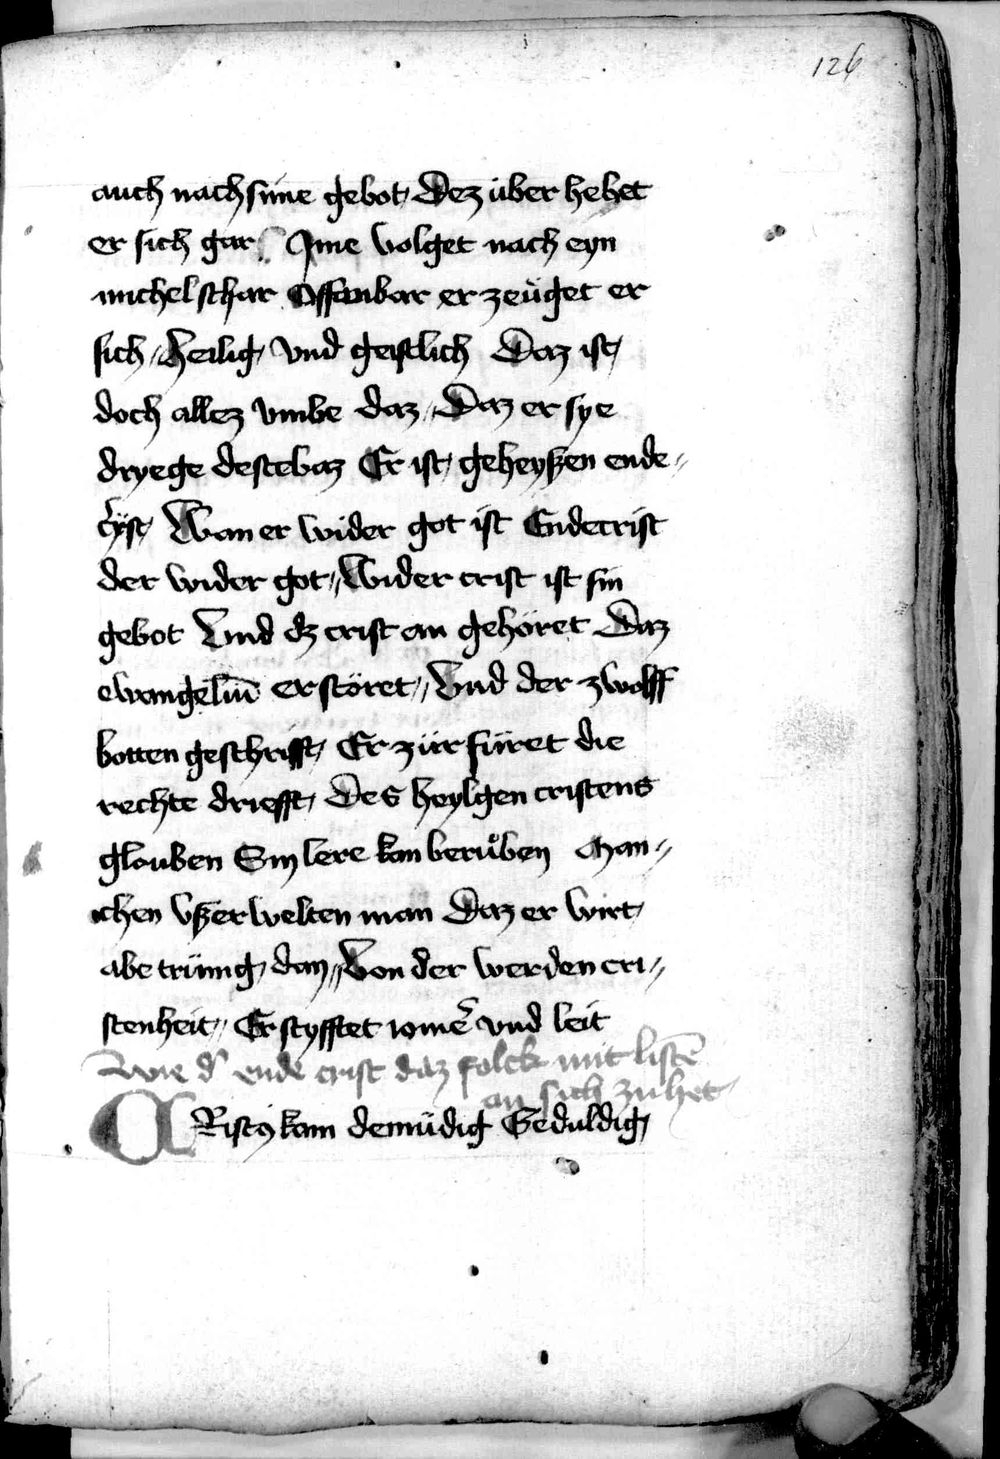 126
auch nach sime gebot, Dez über hebet
er sich gar Ime volget nach eyn
michel schar Offenbar er zeüget er
sich, heilig, vnd geistlich Daz ist,
doch allez vmbe daz, Daz er sye
dryege destebaz Er ist, geheyßen ende⸗
cʼyst, Wan er wider got ist Endecrist
der wider got, Wider crist ist sin
gebot Vnd dz crist an gehöret Daz
ewangeliū erstöret, Vnd der zwolff
botten geschrifft, Er zürfüret die
rechte driefft, Des heylgen cristens
glouben Sin lere kan berůben Man⸗
ichen vßerwelten man Daz er wirt,
abe trünig, dan, Von der werden cri⸗
stenheit, Er styfftet iomeʼ vnd leit
Wie dʼ ende crist daz folck mit listē
an sich zuhet
CRistꝰ kam demüdig Geduldig,